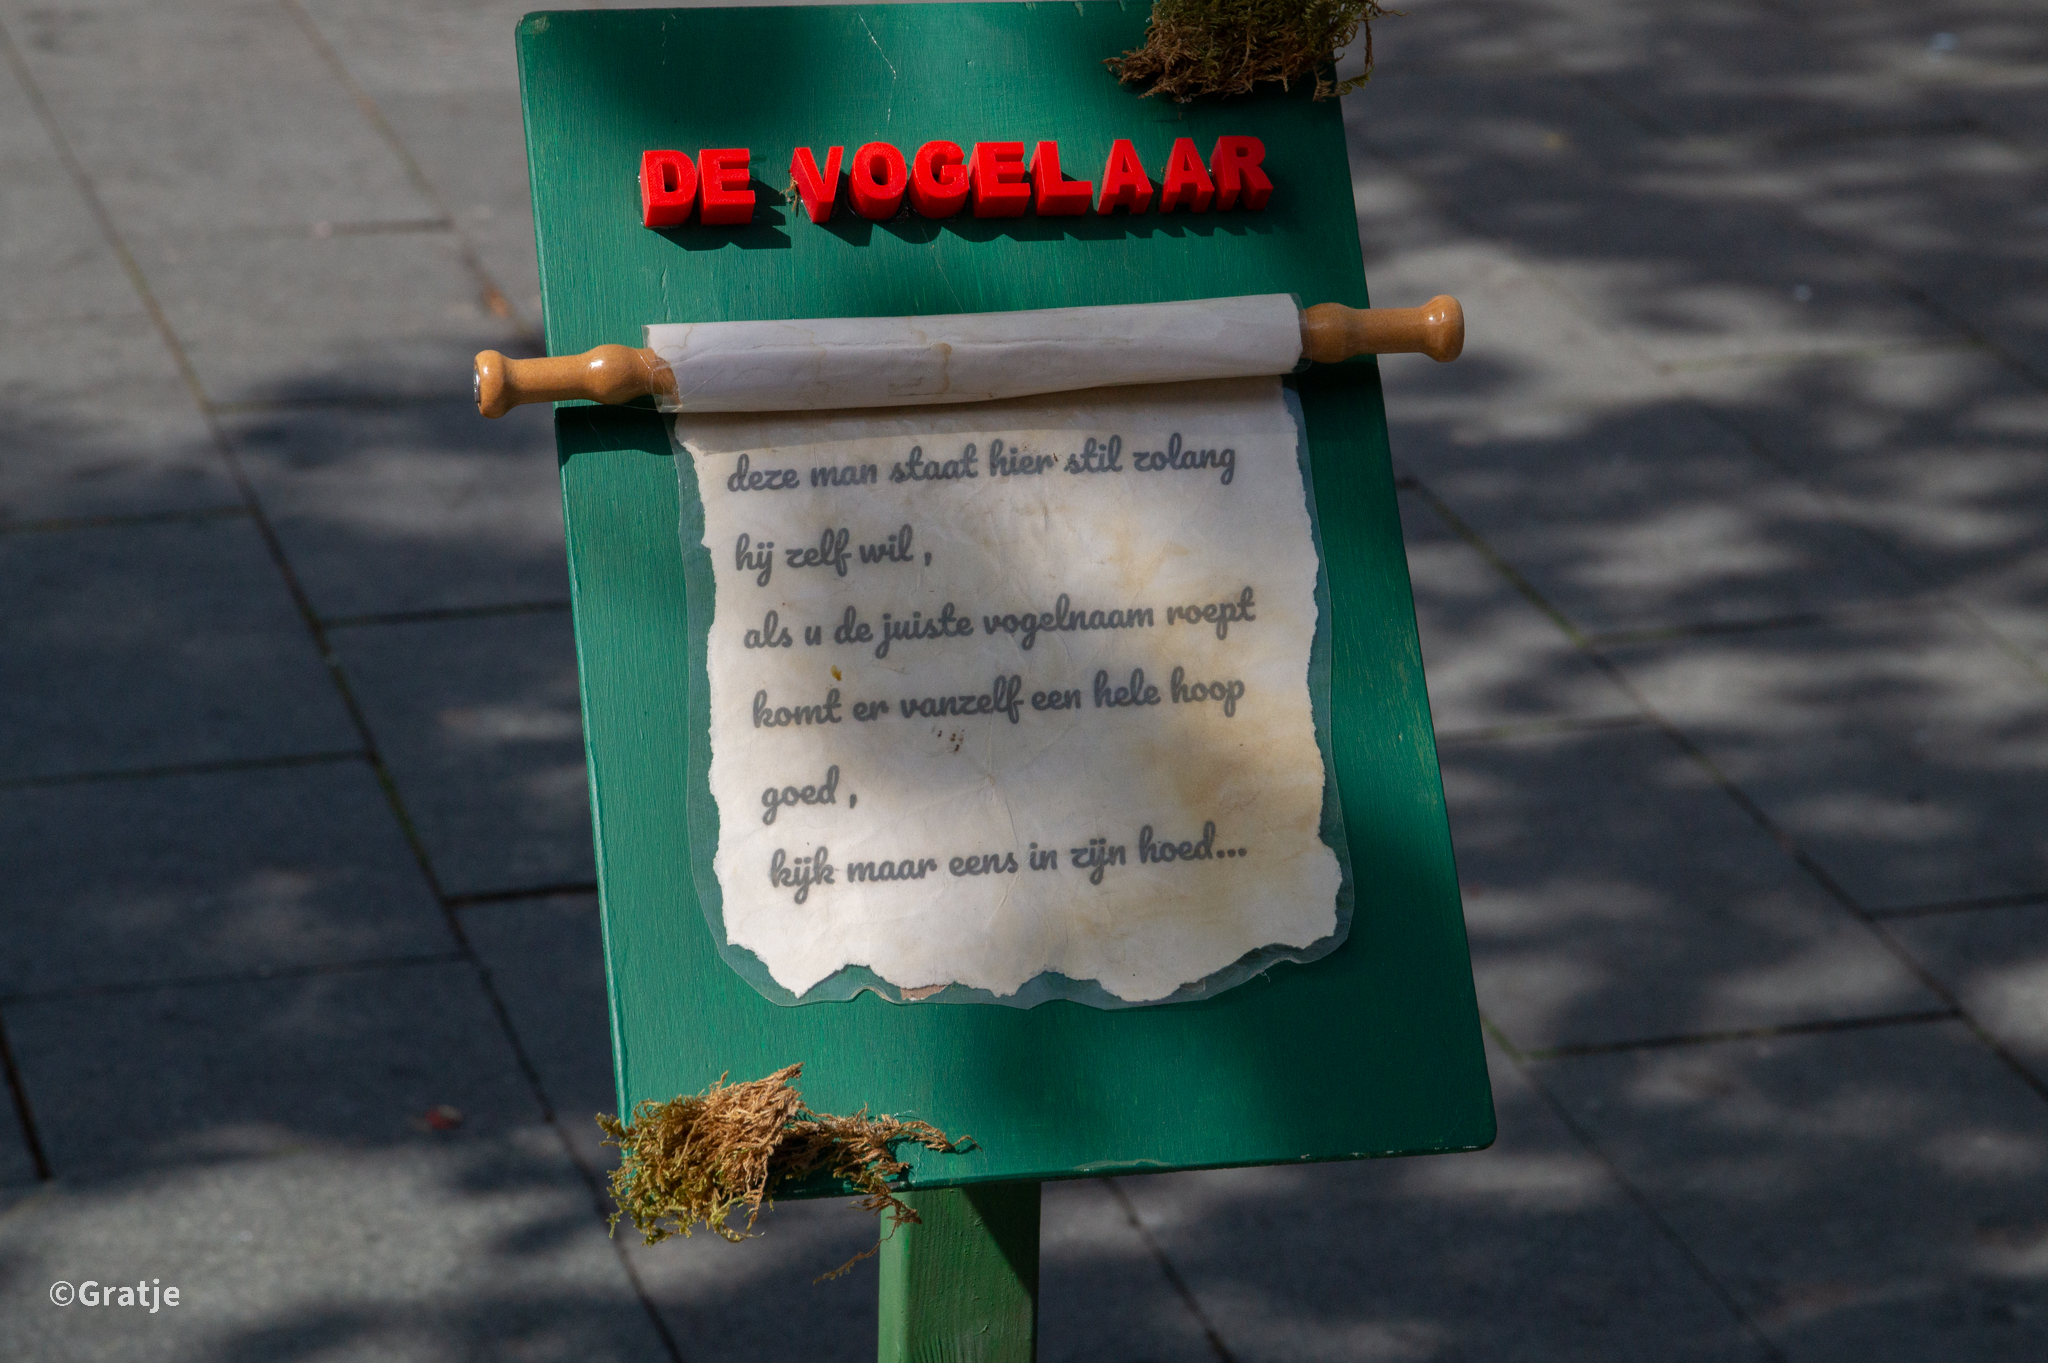 DE VOGELAAR
deze man staat hier stil zolang
hij zelf wil ,
als u de juiste vogelnaam roept
komt er vanzelf een hele hoop
goed ,
kijk maar eens in zijn hoed...
©Gratje